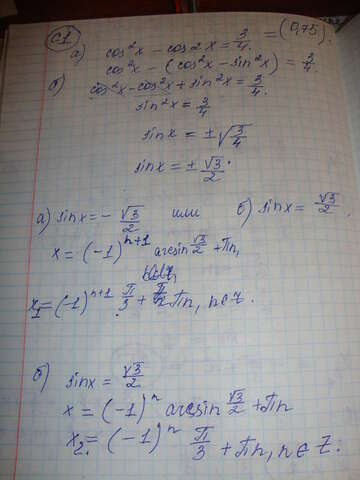 C1
а) cos²x - cos2x = 3/4 = (0,75).
cos²x - (cos²x - sin²x) = 3/4.
б) cos²x - cos²x + sin²x = 3/4.
sin²x = 3/4
sinx = ±√(3/4)
sinx = ± √3/2.
а) sinx = - √3/2 или б) sinx = √3/2.
x = (-1)ⁿ⁺¹ arcsin √3/2 + πn,
x₁ = (-1)ⁿ⁺¹ π/3 + πn, n∈z.
б) sinx = √3/2
x = (-1)ⁿ arcsin √3/2 + πn
x₂ = (-1)ⁿ π/3 + πn, n∈Z.